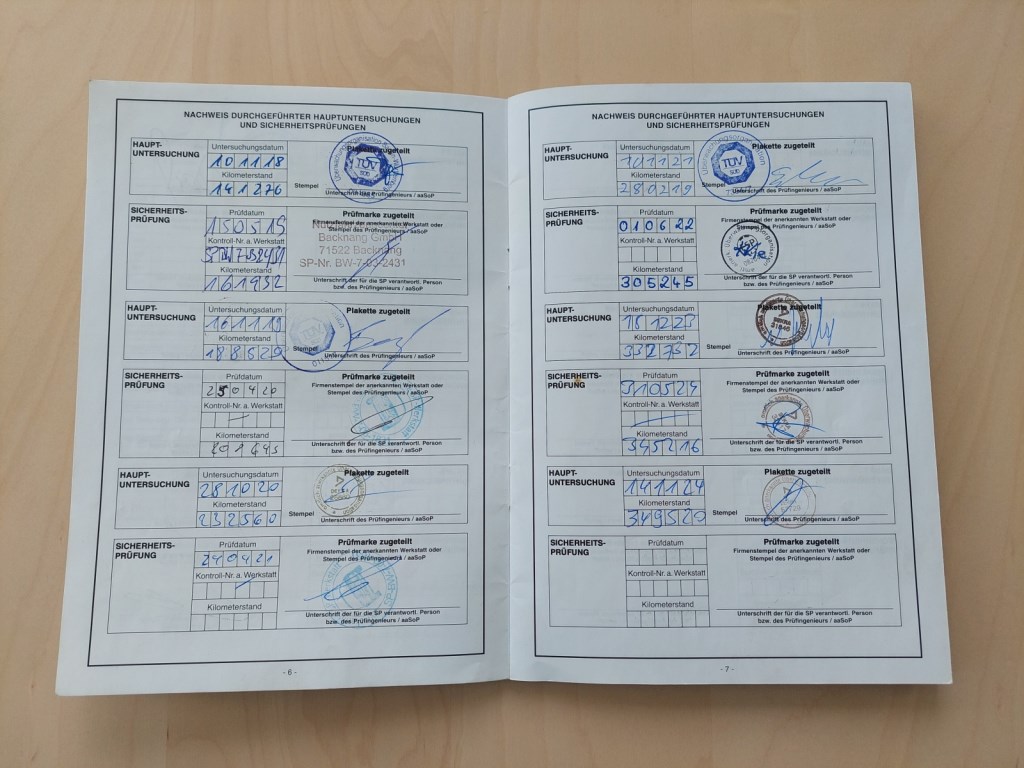 NACHWEIS DURCHGEFÜHRTER HAUPTUNTERSUCHUNGEN
UND SICHERHEITSPRÜFUNGEN
HAUPT-
UNTERSUCHUNG
Untersuchungsdatum
101118
Kilometerstand
141276
Plakette zugeteilt
TÜV
SÜD
Stempel
Unterschrift des Prüfingenieurs / aaSoP
SICHERHEITS-
PRÜFUNG
Prüfdatum
150519
Kontroll-Nr. a. Werkstatt
Kilometerstand
161932
Prüfmarke zugeteilt
Firmenstempel der anerkannten Werkstatt oder
Stempel des Prüfingenieurs / aaSoP
Backnang GmbH
71522 Backnang
SP-Nr. BW-7-03-2431
Unterschrift der für die SP verantwortl. Person
bzw. des Prüfingenieurs / aaSoP
HAUPT-
UNTERSUCHUNG
Untersuchungsdatum
161119
Kilometerstand
188529
Plakette zugeteilt
TÜV
Stempel
Unterschrift des Prüfingenieurs / aaSoP
SICHERHEITS-
PRÜFUNG
Prüfdatum
250420
Kontroll-Nr. a. Werkstatt
Kilometerstand
Prüfmarke zugeteilt
Firmenstempel der anerkannten Werkstatt oder
Stempel des Prüfingenieurs / aaSoP
Unterschrift der für die SP verantwortl. Person
bzw. des Prüfingenieurs / aaSoP
HAUPT-
UNTERSUCHUNG
Untersuchungsdatum
281020
Kilometerstand
232560
Plakette zugeteilt
Stempel
Unterschrift des Prüfingenieurs / aaSoP
SICHERHEITS-
PRÜFUNG
Prüfdatum
240421
Kontroll-Nr. a. Werkstatt
Kilometerstand
Prüfmarke zugeteilt
Firmenstempel der anerkannten Werkstatt oder
Stempel des Prüfingenieurs / aaSoP
Unterschrift der für die SP verantwortl. Person
bzw. des Prüfingenieurs / aaSoP
- 6 -
NACHWEIS DURCHGEFÜHRTER HAUPTUNTERSUCHUNGEN
UND SICHERHEITSPRÜFUNGEN
HAUPT-
UNTERSUCHUNG
Untersuchungsdatum
101121
Kilometerstand
280219
Plakette zugeteilt
TÜV
SÜD
Stempel
Unterschrift des Prüfingenieurs / aaSoP
SICHERHEITS-
PRÜFUNG
Prüfdatum
010622
Kontroll-Nr. a. Werkstatt
Kilometerstand
305245
Prüfmarke zugeteilt
Firmenstempel der anerkannten Werkstatt oder
Stempel des Prüfingenieurs / aaSoP
Unterschrift der für die SP verantwortl. Person
bzw. des Prüfingenieurs / aaSoP
HAUPT-
UNTERSUCHUNG
Untersuchungsdatum
151223
Kilometerstand
332732
Plakette zugeteilt
Stempel
Unterschrift des Prüfingenieurs / aaSoP
SICHERHEITS-
PRÜFUNG
Prüfdatum
310524
Kontroll-Nr. a. Werkstatt
Kilometerstand
345216
Prüfmarke zugeteilt
Firmenstempel der anerkannten Werkstatt oder
Stempel des Prüfingenieurs / aaSoP
Unterschrift der für die SP verantwortl. Person
bzw. des Prüfingenieurs / aaSoP
HAUPT-
UNTERSUCHUNG
Untersuchungsdatum
141124
Kilometerstand
349520
Plakette zugeteilt
Stempel
Unterschrift des Prüfingenieurs / aaSoP
SICHERHEITS-
PRÜFUNG
Prüfdatum
Kontroll-Nr. a. Werkstatt
Kilometerstand
Prüfmarke zugeteilt
Firmenstempel der anerkannten Werkstatt oder
Stempel des Prüfingenieurs / aaSoP
Unterschrift der für die SP verantwortl. Person
bzw. des Prüfingenieurs / aaSoP
- 7 -